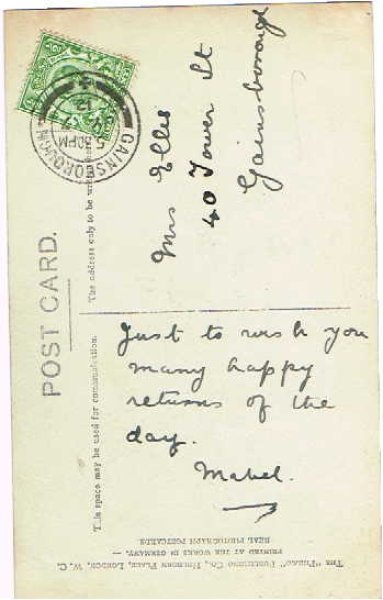 POST CARD.
This space may be used for communication.
The address only to be
GAINSBOROUGH
5.30PM
12
Mrs Ellis
40 Tower St
Gainsborough
Just to wish you
many happy
returns of the
day.
Mabel.
THE "PHILCO" PUBLISHING CO., HOLBORN PLACE, LONDON, W. C.
PRINTED AT THE WORKS IN GERMANY. —
REAL PHOTOGRAPH POSTCARDS.